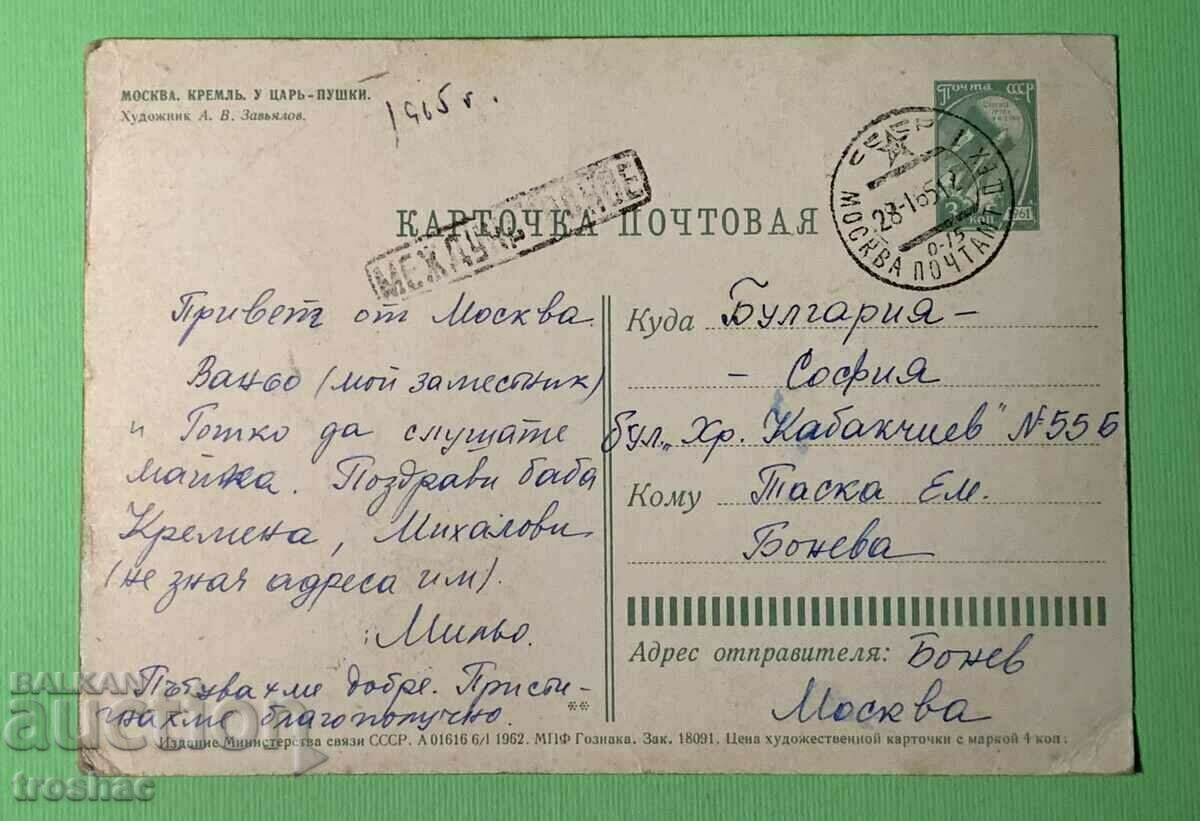 МОСКВА. КРЕМЛЬ. У ЦАРЬ-ПУШКИ.
Художник А. В. Завьялов.
1965 г.
Почта СССР
1961
МОСКВА ПОЧТАМТ
28-1 65
КАРТОЧКА ПОЧТОВАЯ
Привет от Москва.
Ваньо (мой заместник)
и Гошко да слушате
майка. Поздрави баба
Кремена, Михалови
(не зная адреса им).
Мильо.
Пътувахме добре. Присти-
гнахме благополучно.
**
Куда Булгария –
– София
бул. „Хр. Кабакчиев" № 55 Б
Кому Таска Ем.
Бонева
Адрес отправителя: Бонев
Москва
Издание Министерства связи СССР. А 01616 6/I 1962. МПФ Гознака. Зак. 18091. Цена художественной карточки с маркой 4 коп.
BALKAN
auction
troshac